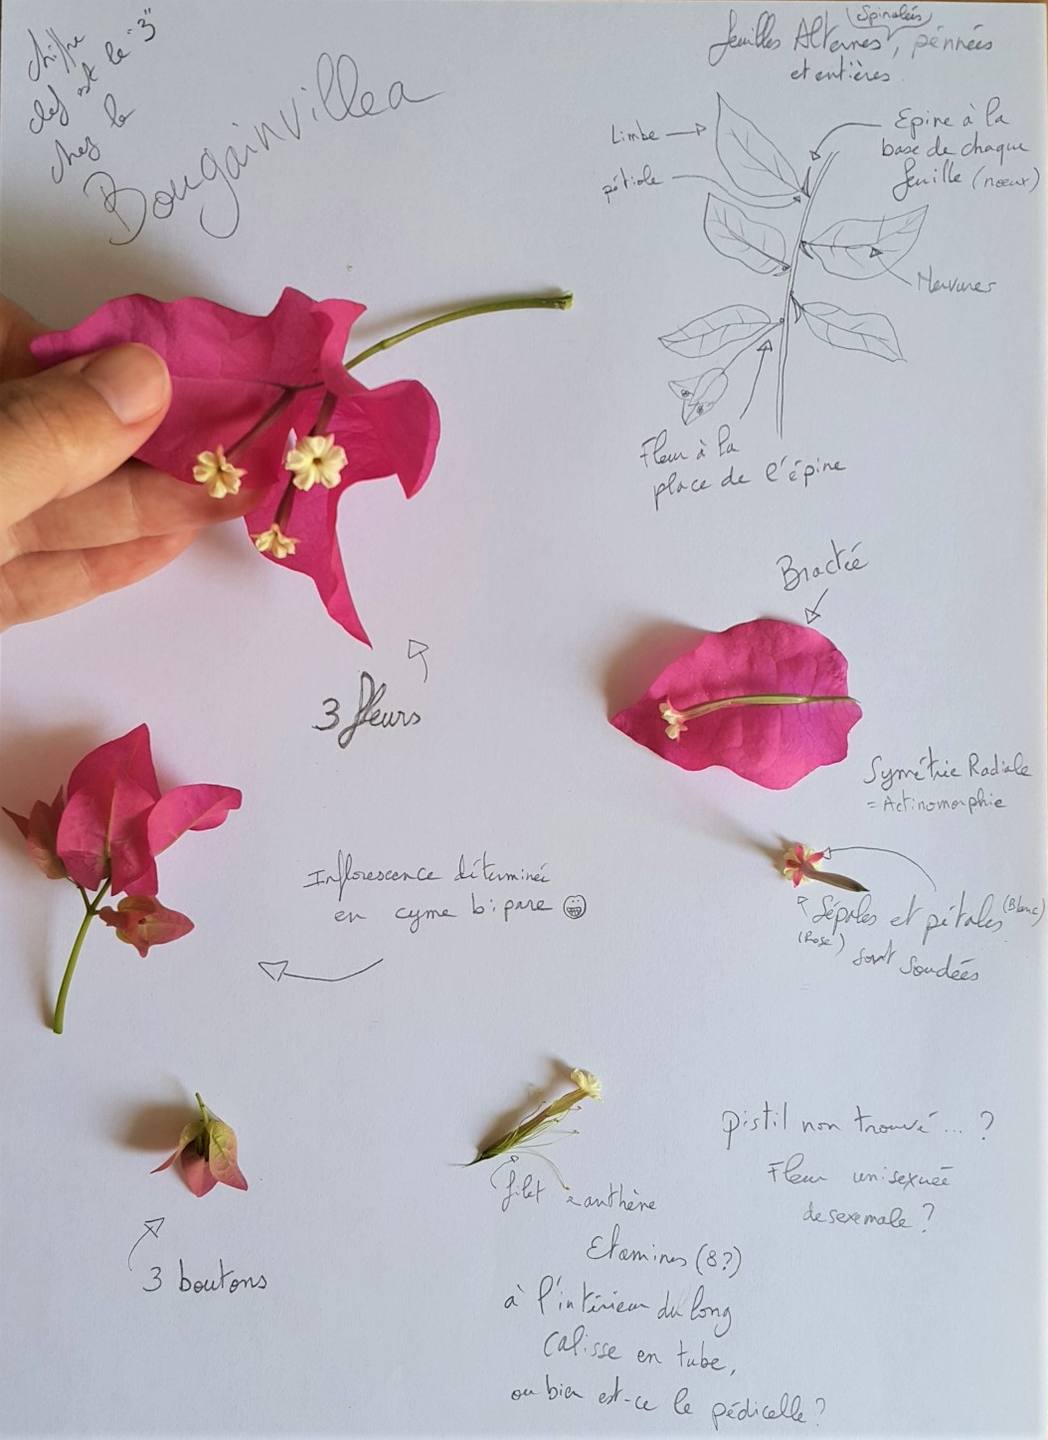 chiffre
clef est le "3"
chez le
Bougainvillea
(Spiralées)
feuilles Alternes, pénnées
et entières.
Limbe
Epine à la
base de chaque
feuille (nœux)
pétiole
Nervures
Fleur à la
place de l'épine
Bractée
3 fleurs
Symétrie Radiale
= Actinomorphie
Inflorescence déterminée
en cyme bipare
Sépales et pétales (Blanc)
(Rose) sont soudées
Pistil non trouvé... ?
Fleur unisexuée
de sexe male ?
filet anthère
Etamines (8?)
à l'intérieur du long
Calisse en tube,
ou bien est-ce le pédicelle ?
3 boutons